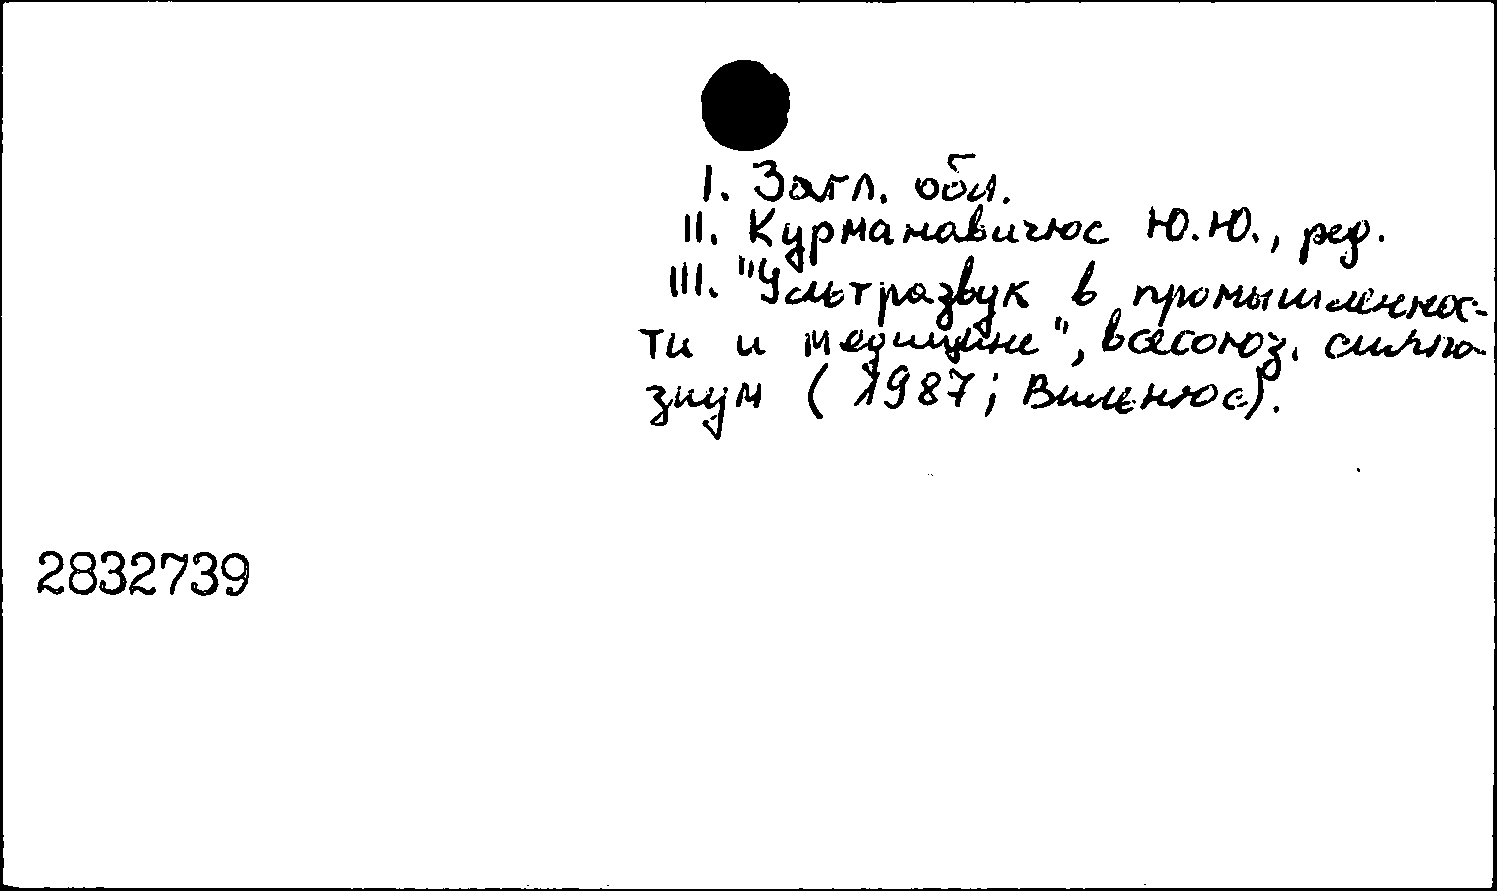 I. Загл. обл.
II. Курманавичюс Ю.Ю., ред.
III. "Ультразвук в промышленнос-
ти и медицине", всесоюз. симпо-
зиум (1987; Вильнюс).
2832739